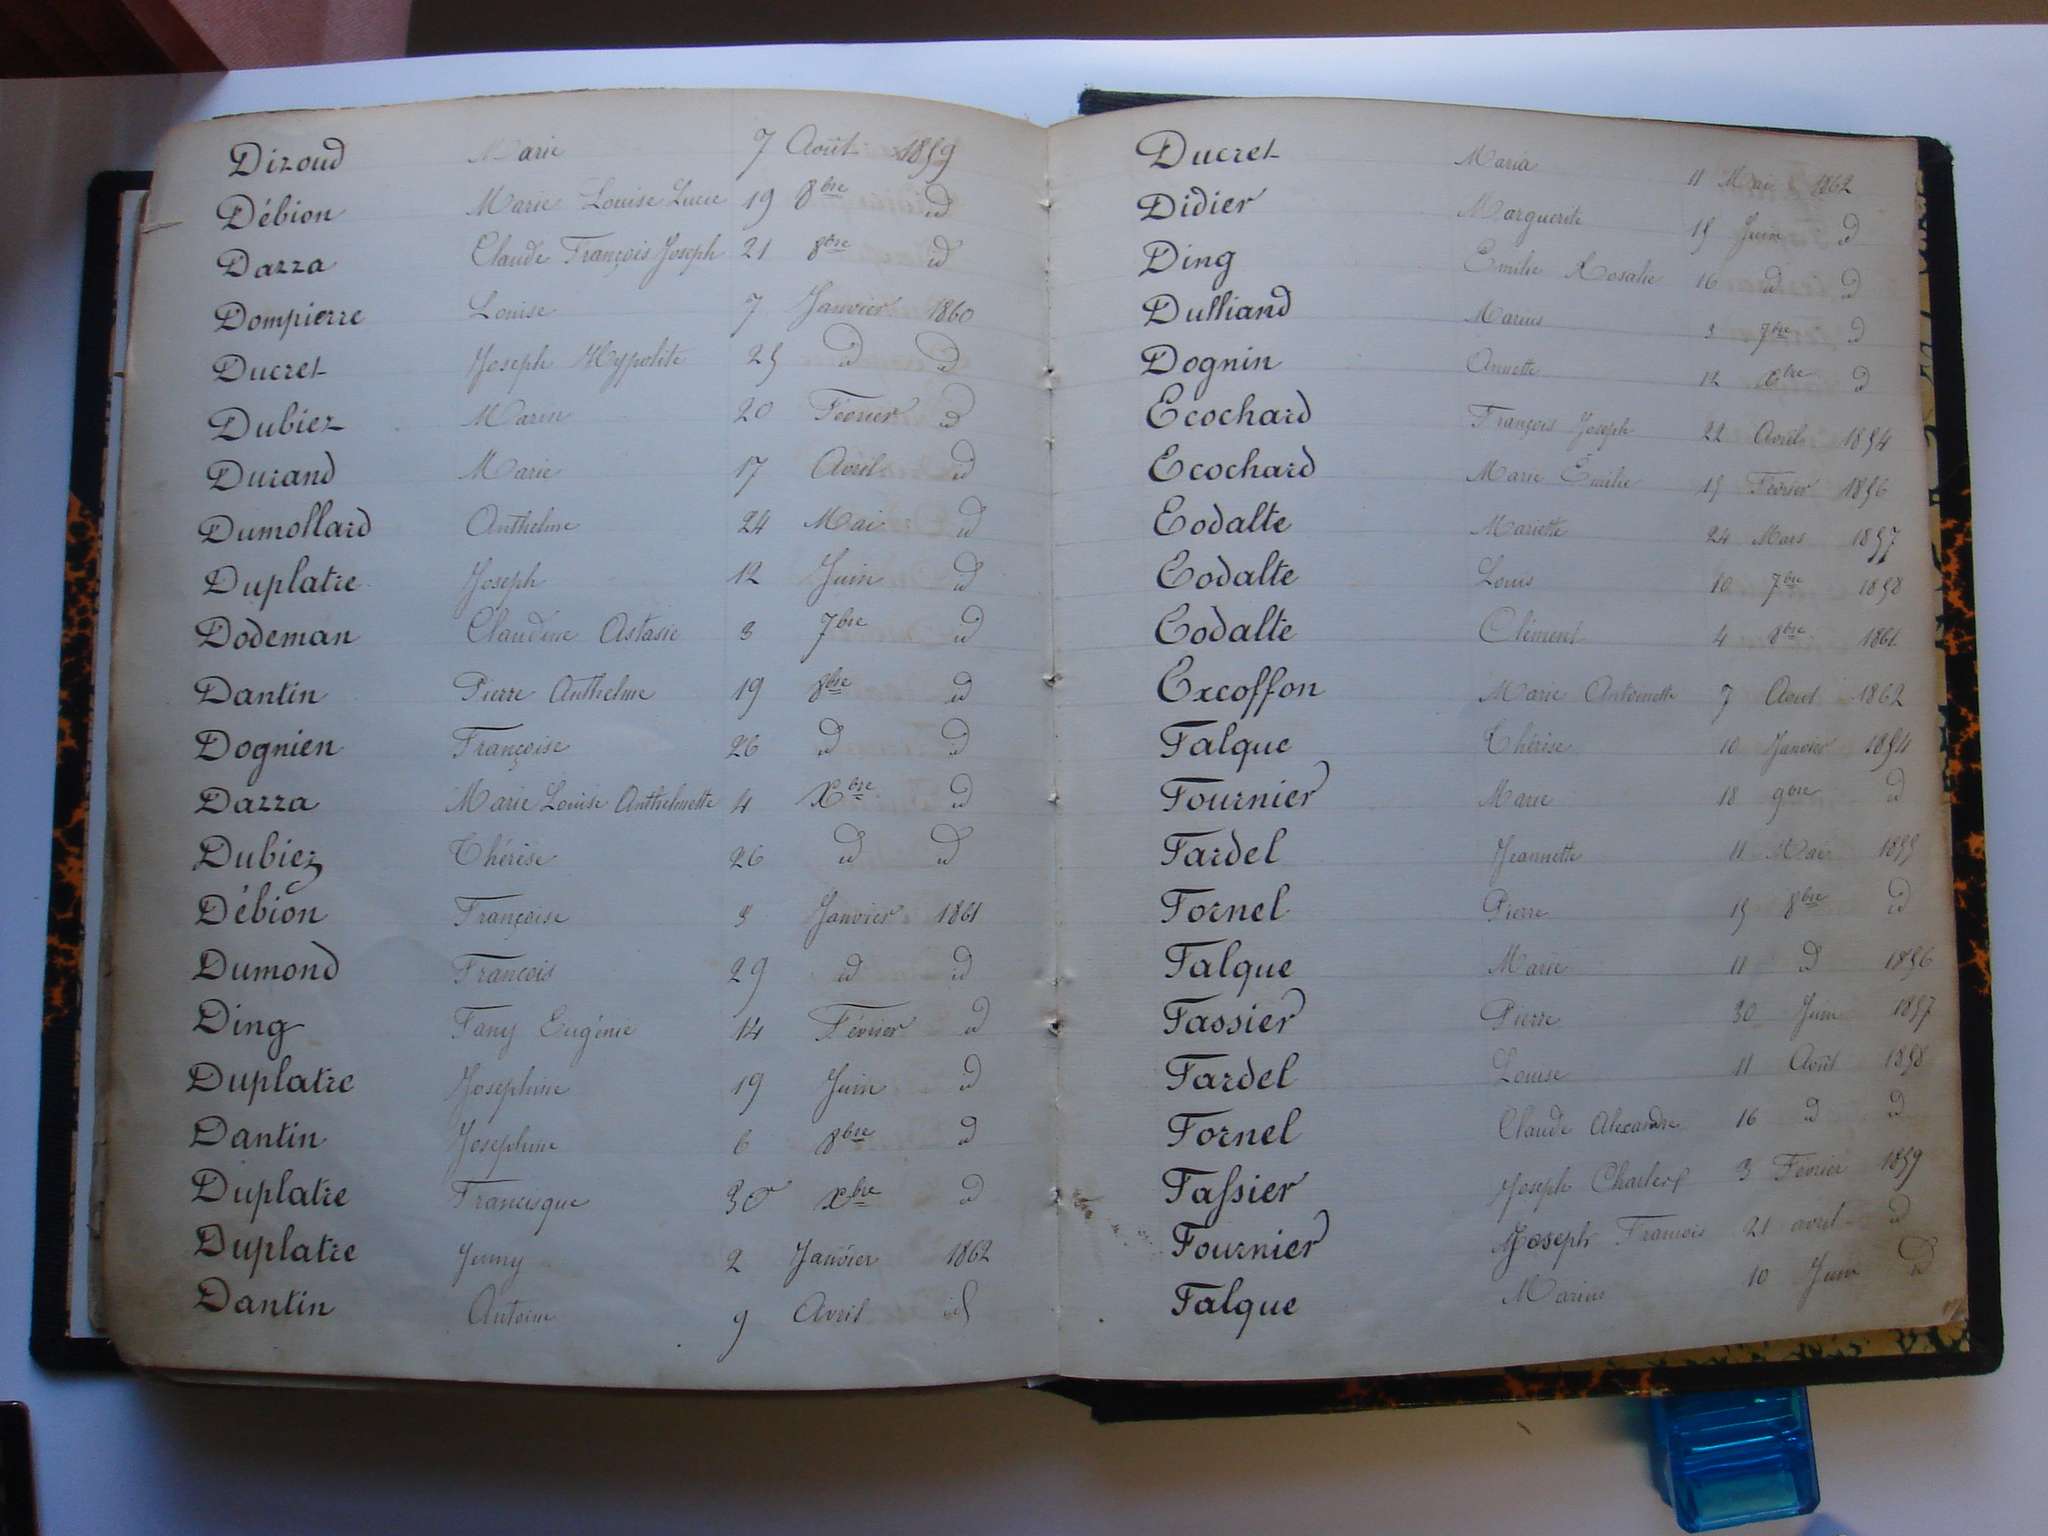 Dizoud Marie 7 Août 1859
Débion Marie Louise Lucie 19 8bre id
Dazza Claude François Joseph 21 8bre id
Dompierre Louise 7 Janvier 1860
Ducret Joseph Hypolite 25 id id
Dubiez Marie 20 Février id
Durand Marie 17 Avril id
Dumollard Anthelme 24 Mai id
Duplatre Joseph 12 Juin id
Dodeman Claudine Astasie 3 7bre id
Dantin Pierre Anthelme 19 8bre id
Dognien Françoise 26 id id
Dazza Marie Louise Anthelmette 4 Xbre id
Dubiez Thérèse 26 id id
Débion Françoise 3 Janvier 1861
Dumond François 29 id id
Ding Fany Eugénie 14 Février id
Duplatre Josephine 19 Juin id
Dantin Josephine 6 8bre id
Duplatre Francisque 30 Xbre id
Duplatre Jenny 2 Janvier 1862
Dantin Antoine 9 Avril id
Ducret Maria 11 Mai 1862
Didier Marguerite 15 Juin id
Ding Emilie Rosalie 16 id id
Dulliand Marius 3 7bre id
Dognin Annette 12 Xbre id
Ecochard François Joseph 22 Avril 1854
Ecochard Marie Émilie 15 Février 1856
Eodalte Mariette 24 Mars 1857
Eodalte Louis 10 7bre 1858
Eodalte Clément 4 8bre 1861
Excoffon Marie Antoinette 7 Aout 1862
Falque Thérèse 10 Janvier 1854
Fournier Marie 18 9bre id
Fardel Jeannette 11 Mai 1855
Fornel Pierre 15 8bre id
Falque Marie 11 id 1856
Fassier Pierre 30 Juin 1857
Fardel Louise 11 Août 1858
Fornel Claude Alexandre 16 id id
Fassier Joseph Charles 3 Février 1859
Fournier Joseph Francois 21 avril id
Falque Marius 10 Juin id